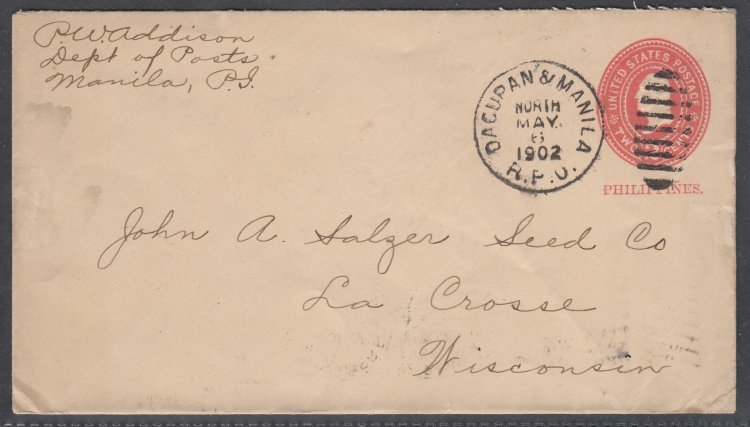 P.W. Addison
Dept of Posts.
Manila, P.I.
DAGUPAN & MANILA
NORTH
MAY
6
1902
R.P.O.
UNITED STATES POSTAGE
TWO CENTS
PHILIPPINES.
John A. Salzer Seed Co
La Crosse
Wisconsin